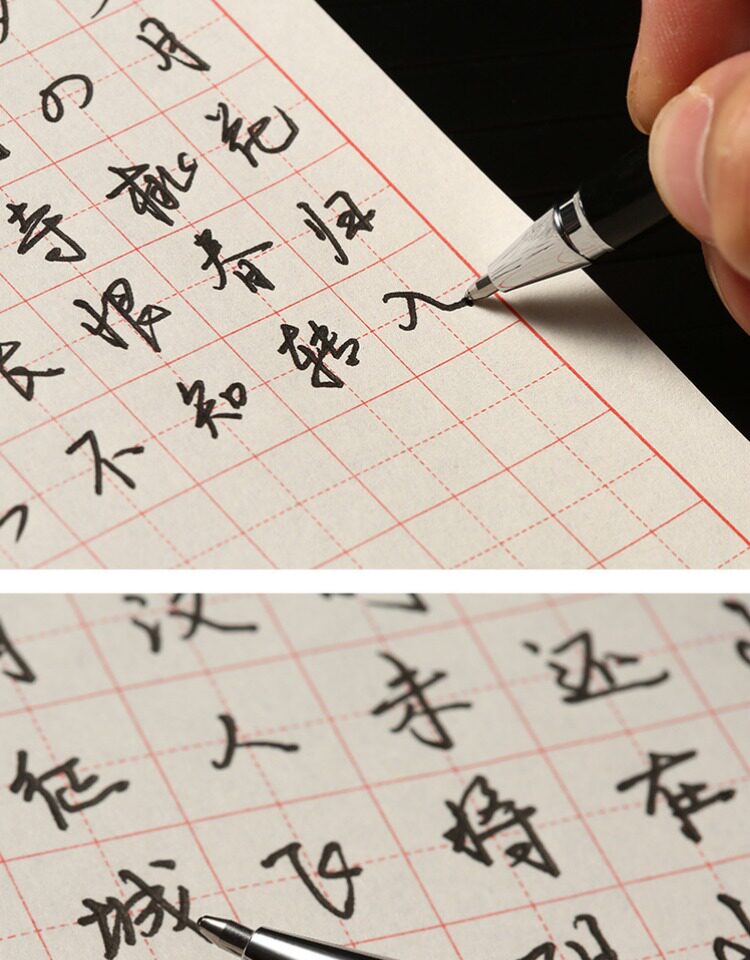 四月
寺桃花
长恨春归
不知转入
汉
征人未还
城飞将在